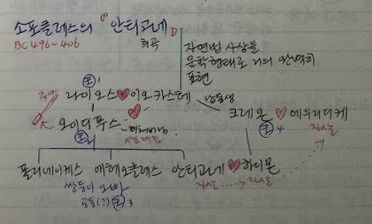 소포클레스의 "안티고네"
BC 496-406
희곡
자연법 사상을
문학형태로 거의 완벽히
표현
왕1
라이오스 ♥ 이오카스테
남동생
크레온 ♥ 에우리디케
왕4
오이디푸스
왕2
자살
폴리네이케스 에테오클레스 안티고네 ♥ 하이몬
쌍둥이 오빠
자살 ... → 자살
공동(?) 왕3